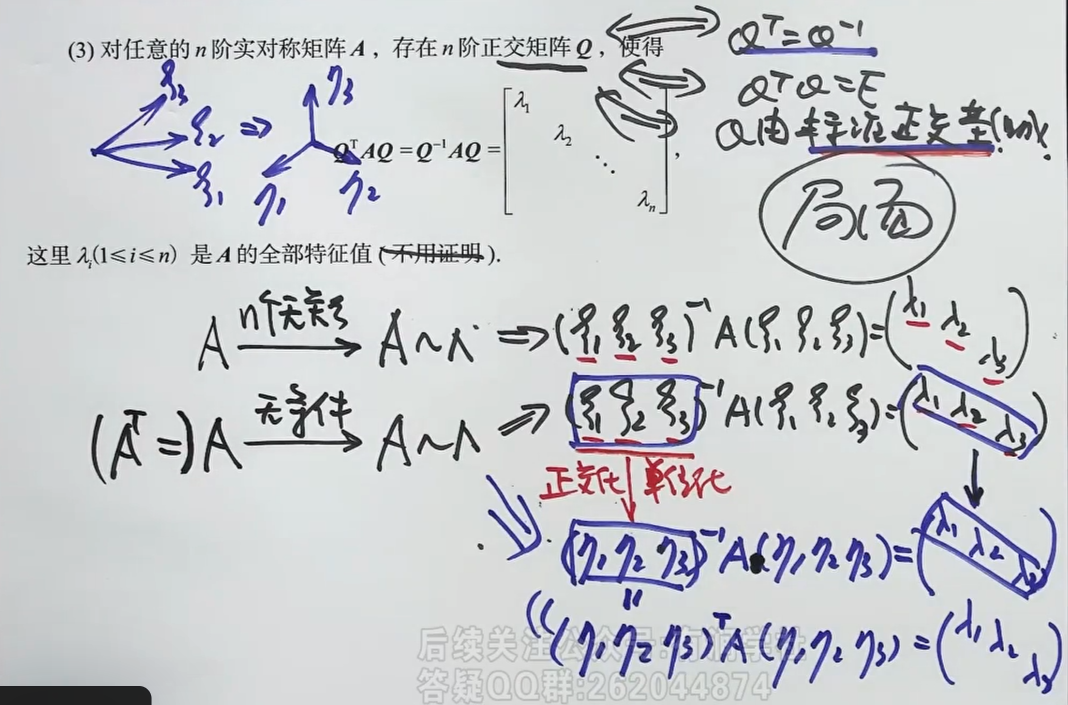 (3) 对任意的 n 阶实对称矩阵 A，存在 n 阶正交矩阵 Q，使得
Qᵀ=Q⁻¹
QᵀQ=E
Q由标准正交基
局面
ξ₃
ξ₂
ξ₁
⇒
η₃
η₁
η₂
QᵀAQ=Q⁻¹AQ= [λ₁ λ₂ ⋱ λₙ] ,
这里 λᵢ(1≤i≤n) 是 A 的全部特征值 (不用证明).
A n个无关ξ → A~Λ ⇒ (ξ₁ ξ₂ ξ₃)⁻¹ A (ξ₁ ξ₂ ξ₃)=(λ₁ λ₂ λ₃)
(Aᵀ=)A 无条件 → A~Λ ⇒ (ξ₁ ξ₂ ξ₃)⁻¹ A (ξ₁ ξ₂ ξ₃)=(λ₁ λ₂ λ₃)
正交化 ↓ 单位化
(η₁ η₂ η₃)⁻¹ A (η₁ η₂ η₃)=(λ₁ λ₂ λ₃)
(η₁ η₂ η₃)ᵀ A (η₁ η₂ η₃)=(λ₁ λ₂ λ₃)
后续关注公众号:
答疑QQ群:262044874